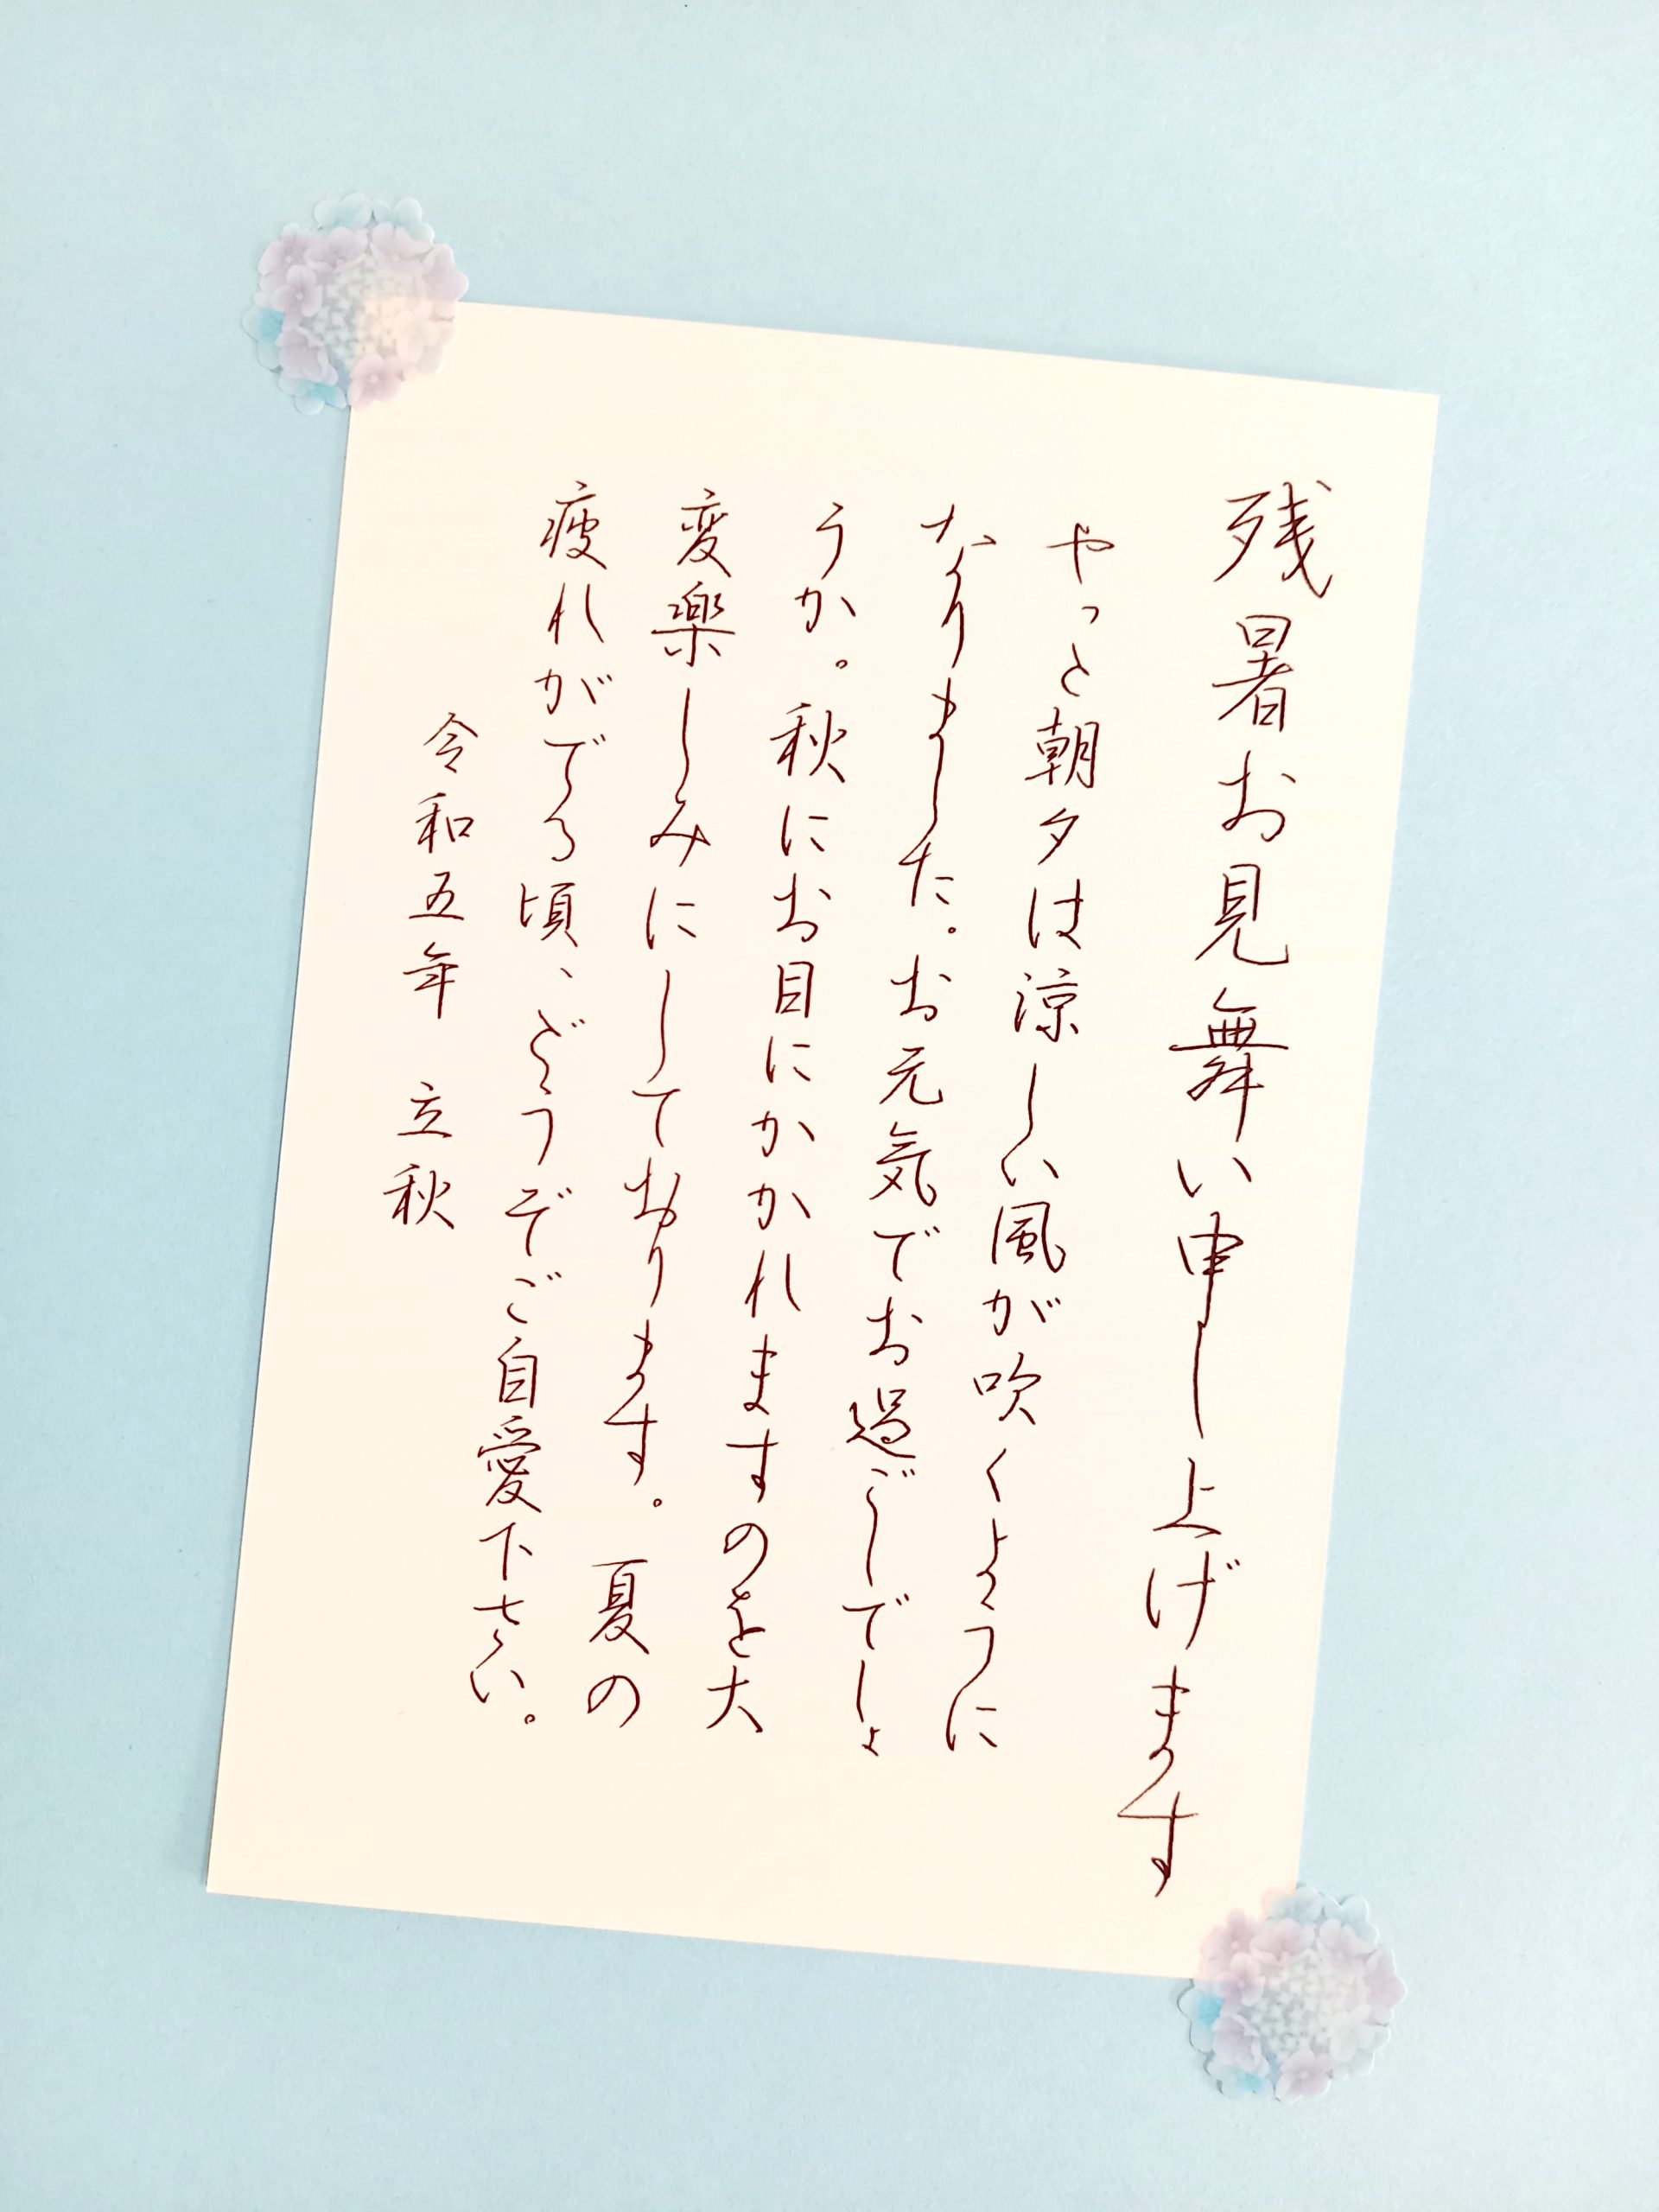 残暑お見舞い申し上げます
やっと朝夕は涼しい風が吹くように
なりました。お元気でお過ごしでしょ
うか。秋にお目にかかれますのを大
変楽しみにしております。夏の
疲れがでる頃、どうぞご自愛下さい。
令和五年 立秋